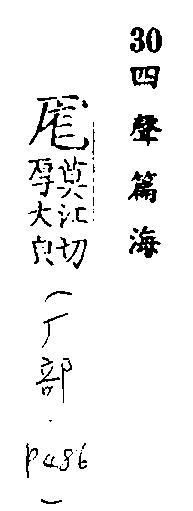 30
四聲篇海
莫江切
厚大皃
(厂部.P486)